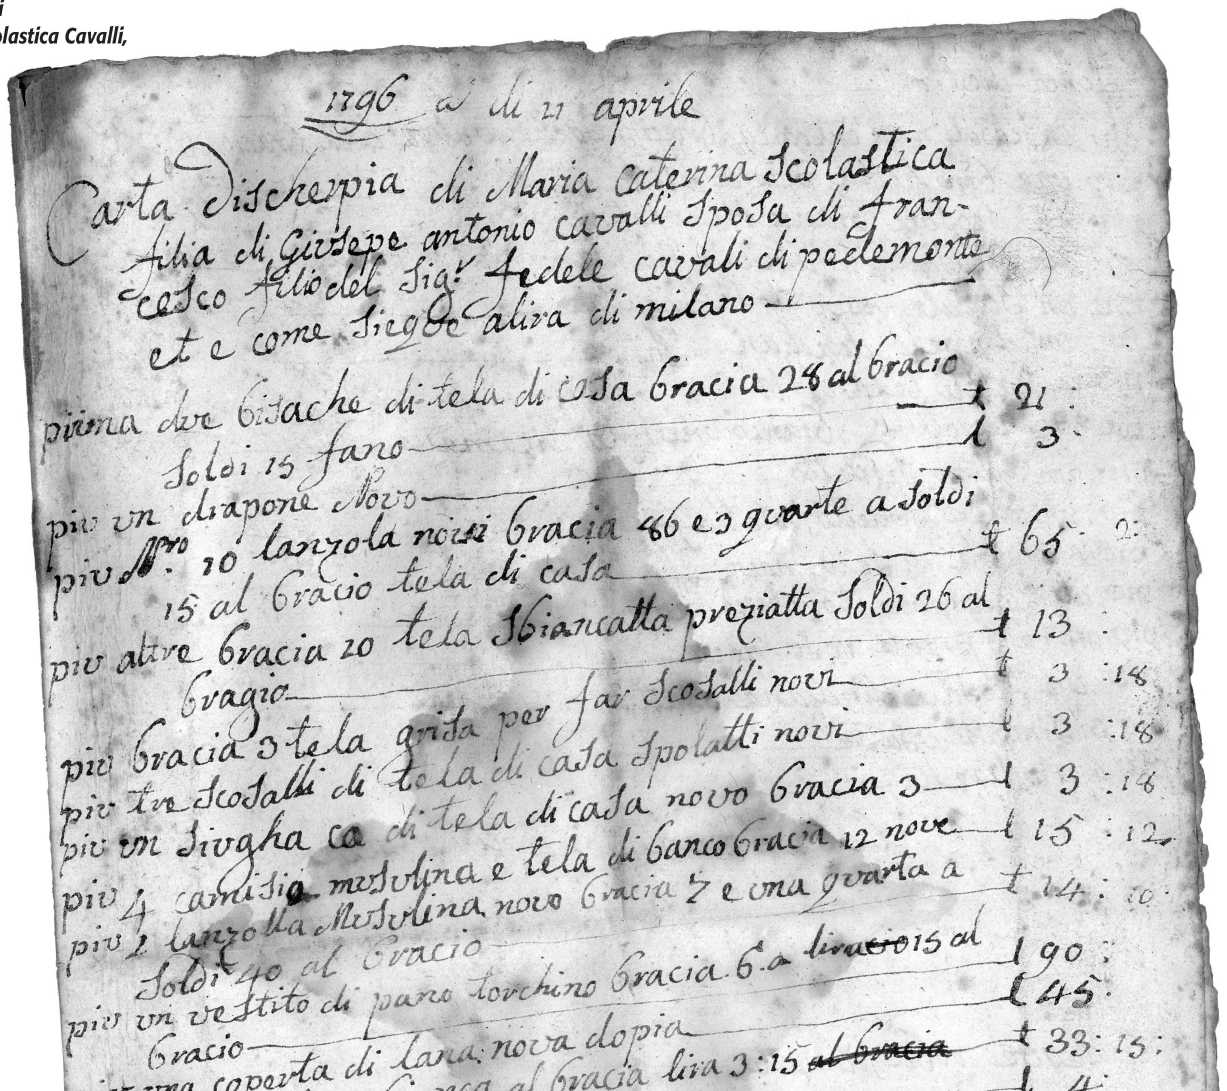 i
olastica Cavalli,
1796 a di 21 aprile
Carta discherpia di Maria Caterina Scolastica
filia di Givsepe antonio cavalli sposa di fran-
cesco filio del Sig.r fedele cavali di pedemonte
et e come sieqve alira di milano
prima dve bisache di tela di casa bracia 28 al bracio
soldi 15 fano £ 21 :
piv vn drapone Novo £ 3 :
piv N.ro 10 lanzola novi bracia 86 e 3 qvarte a soldi
15 al bracio tela di casa £ 65 : 2 :
piv altre bracia 10 tela sbiancatta preziatta soldi 26 al
bragio £ 13 :
piv bracia 3 tela grisa per far scosalli novi £ 3 : 18
piv tre scosalli di tela di casa spolatti novi £ 3 : 18
piv vn sivgha ca di tela di casa novo bracia 3 £ 3 : 18
piv 4 camisia mvsvlina e tela di banco bracia 12 nove £ 15 : 12
piv 1 lanzolla Mvsvlina novo bracia 7 e vna qvarta a
soldi 40 al bracio £ 14 : 10
piv vn vestito di pano torchino bracia 6 a lira 15 al
bracio £ 90 :
vna coperta di lana nova dopia £ 45 :
al bracia lira 3 : 15 al bracia £ 33 : 15 :
£ 4 :